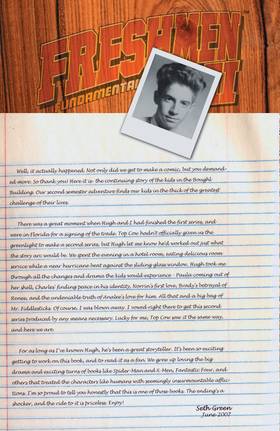 FRESHMEN II
FUNDAMENTAL
Well, it actually happened. Not only did we get to make a comic, but you demand-
ed more. So thank you! Here it is- the continuing story of the kids in the Boughl
Building. Our second semester adventure finds our kids in the thick of the greatest
challenge of their lives.
There was a great moment when Hugh and I had finished the first series, and
were in Florida for a signing of the trade. Top Cow hadn't officially given us the
greenlight to make a second series, but Hugh let me know he'd worked out just what
the story arc would be. We spent the evening in a hotel room, eating delicious room
service while a near hurricane beat against the sliding glass window. Hugh took me
through all the changes and drama the kids would experience - Paula coming out of
her shell, Charles' finding peace in his identity, Norrin's first love, Brady's betrayal of
Renee, and the undeniable truth of Annalee's love for him. All that and a big bag of
Mr. Fiddlesticks. Of course, I was blown away. I vowed right there to get this second
series produced by any means necessary. Lucky for me, Top Cow saw it the same way,
and here we are.
For as long as I've known Hugh, he's been a great storyteller. It's been so exciting
getting to work on this book, and to read it as a fan. We grew up loving the big
drama and exciting turns of books like Spider-Man and X-Men, Fantastic Four, and
others that treated the characters like humans with seemingly insurmountable afflic-
tions. I'm so proud to tell you honestly that this is one of those books. The ending's a
shocker, and the ride to it is priceless. Enjoy!
Seth Green
June 2007